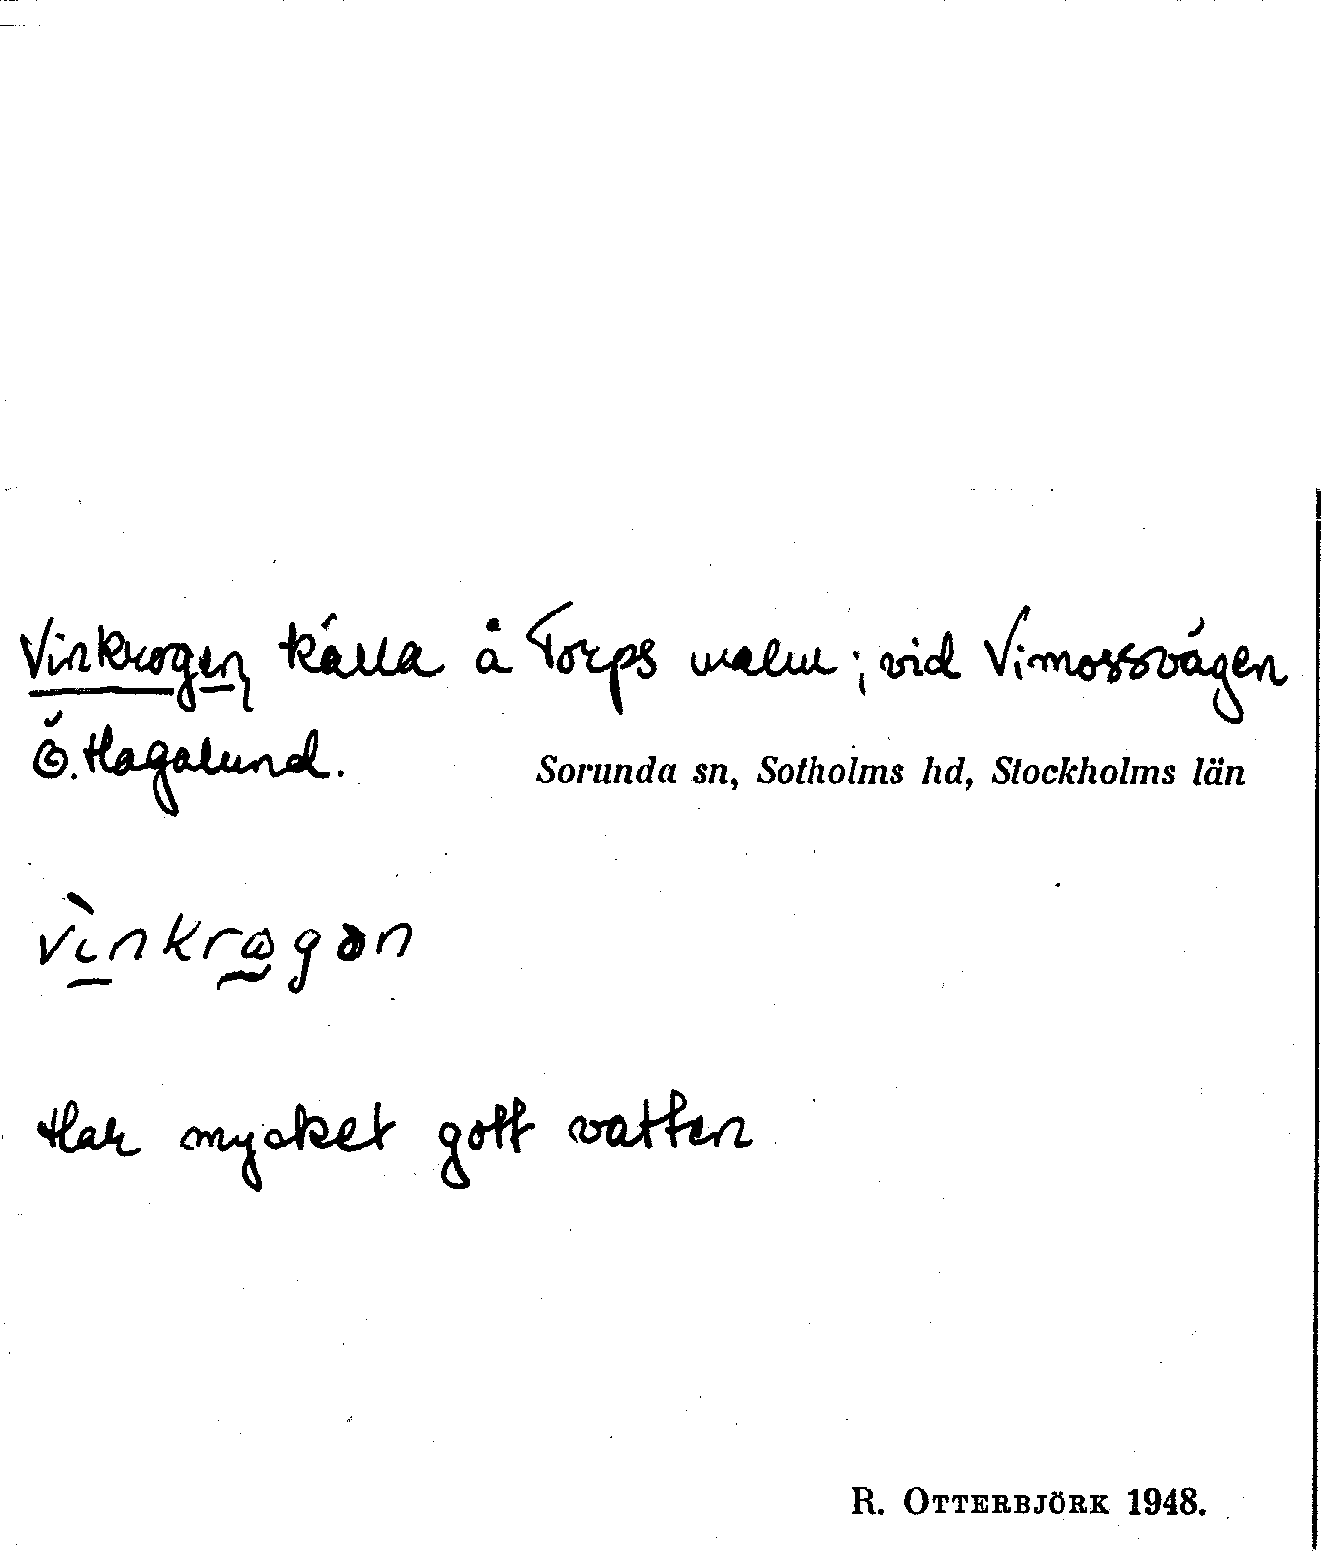 Vinkrogen, källa å Torps malm; vid Vimossvägen
Ö. Hagalund.
Sorunda sn, Sotholms hd, Stockholms län
vìnkrωgən
Har mycket gott vatten
R. OTTERBJÖRK 1948.